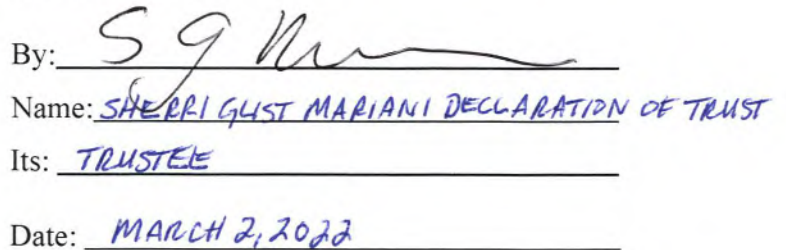 By: S G M
Name: SHERRI GUST MARIANI DECLARATION OF TRUST
Its: TRUSTEE
Date: MARCH 2, 2022